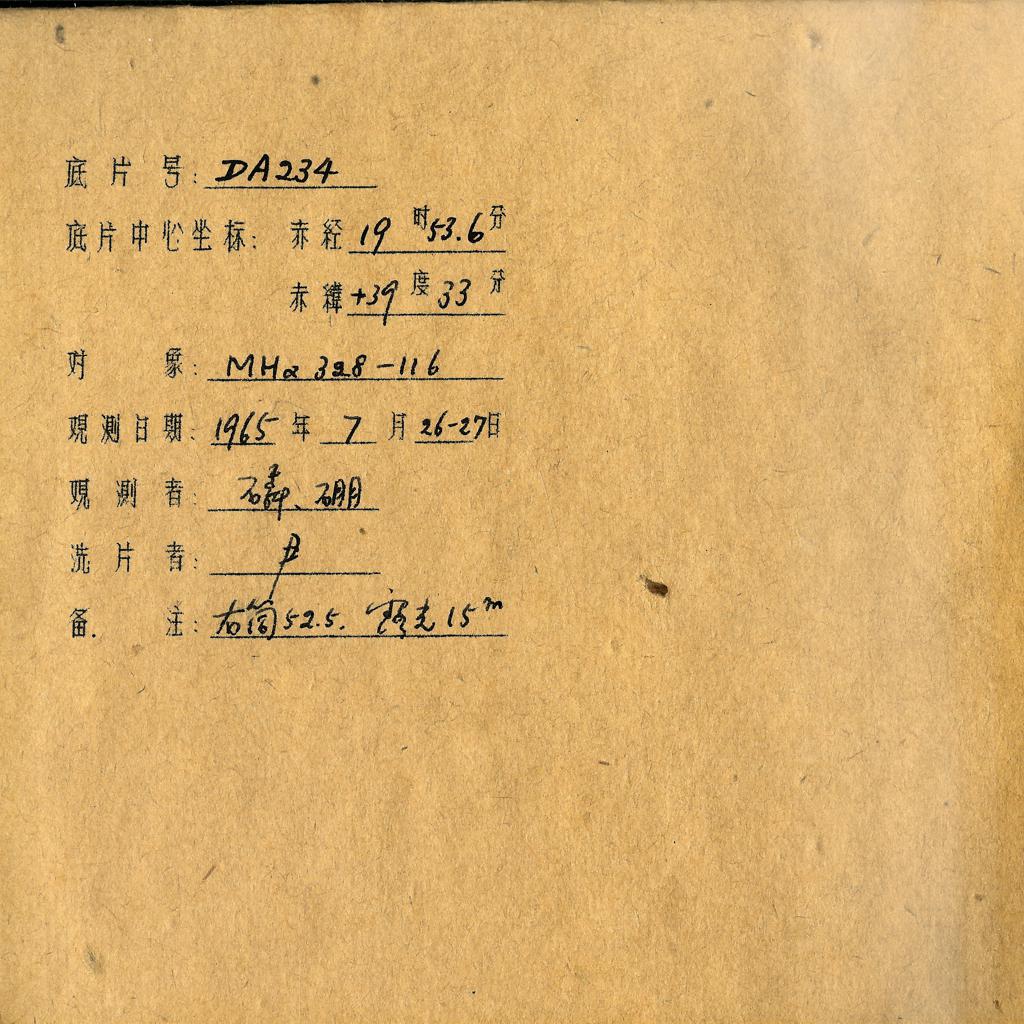 底片号: DA234
底片中心坐标: 赤经 19 时 53.6 分
赤緯 +39 度 33 分
对象: MHα 328-116
观测日期: 1965 年 7 月 26-27 日
观测者: 磷、硼
洗片者:
备注: 右筒 52.5. 露光 15ᵐ